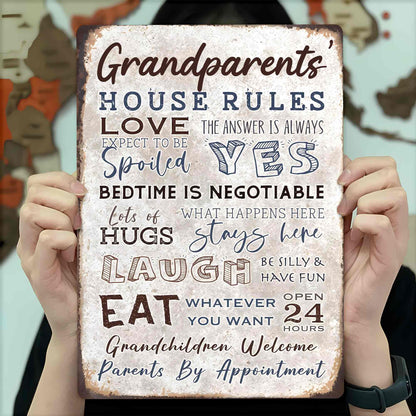 Grandparents'
HOUSE RULES
LOVE THE ANSWER IS ALWAYS
EXPECT TO BE
Spoiled YES
BEDTIME IS NEGOTIABLE
Lots of WHAT HAPPENS HERE
HUGS stays here
LAUGH BE SILLY &
HAVE FUN
EAT WHATEVER
YOU WANT
OPEN
24
HOURS
Grandchildren Welcome
Parents By Appointment